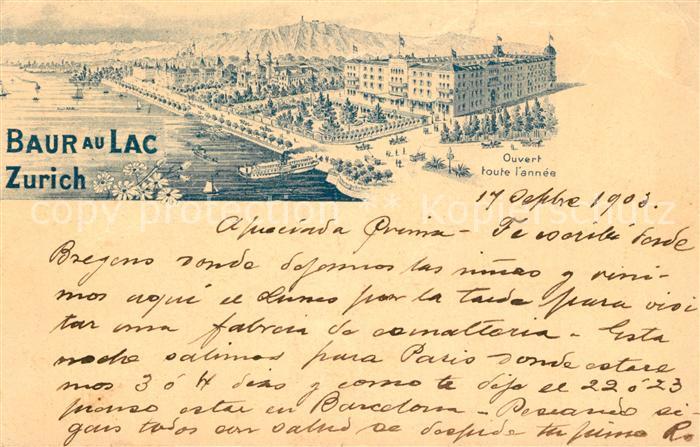 BAUR AU LAC
Zurich
Ouvert
toute l'année
17 Sepbre 1903
Apreciada Prima - Te escribí desde
Bregens donde dejamos las niñas y veni-
mos aquí el Lunes por la tarde para visi
tar una fabrica de esmalteria - Esta
noche salimos para Paris donde estare
mos 3 ó 4 dias y como te dije el 22 ó 23
pienso estar en Barcelona - Deseando si
gais todos con salud se despide tu primo R
copy protection Kopierschutz